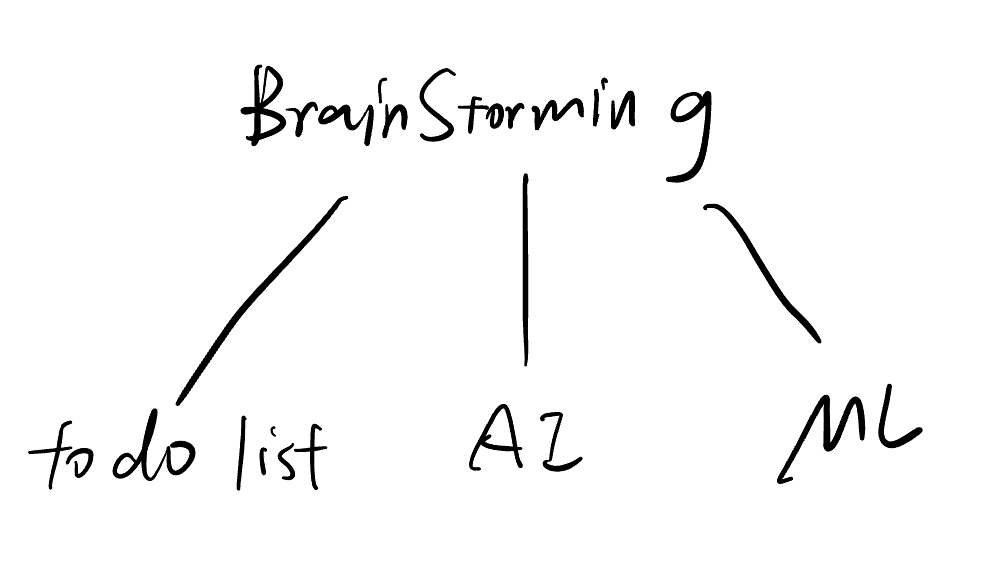 BrainStorming
todo list
AI
ML